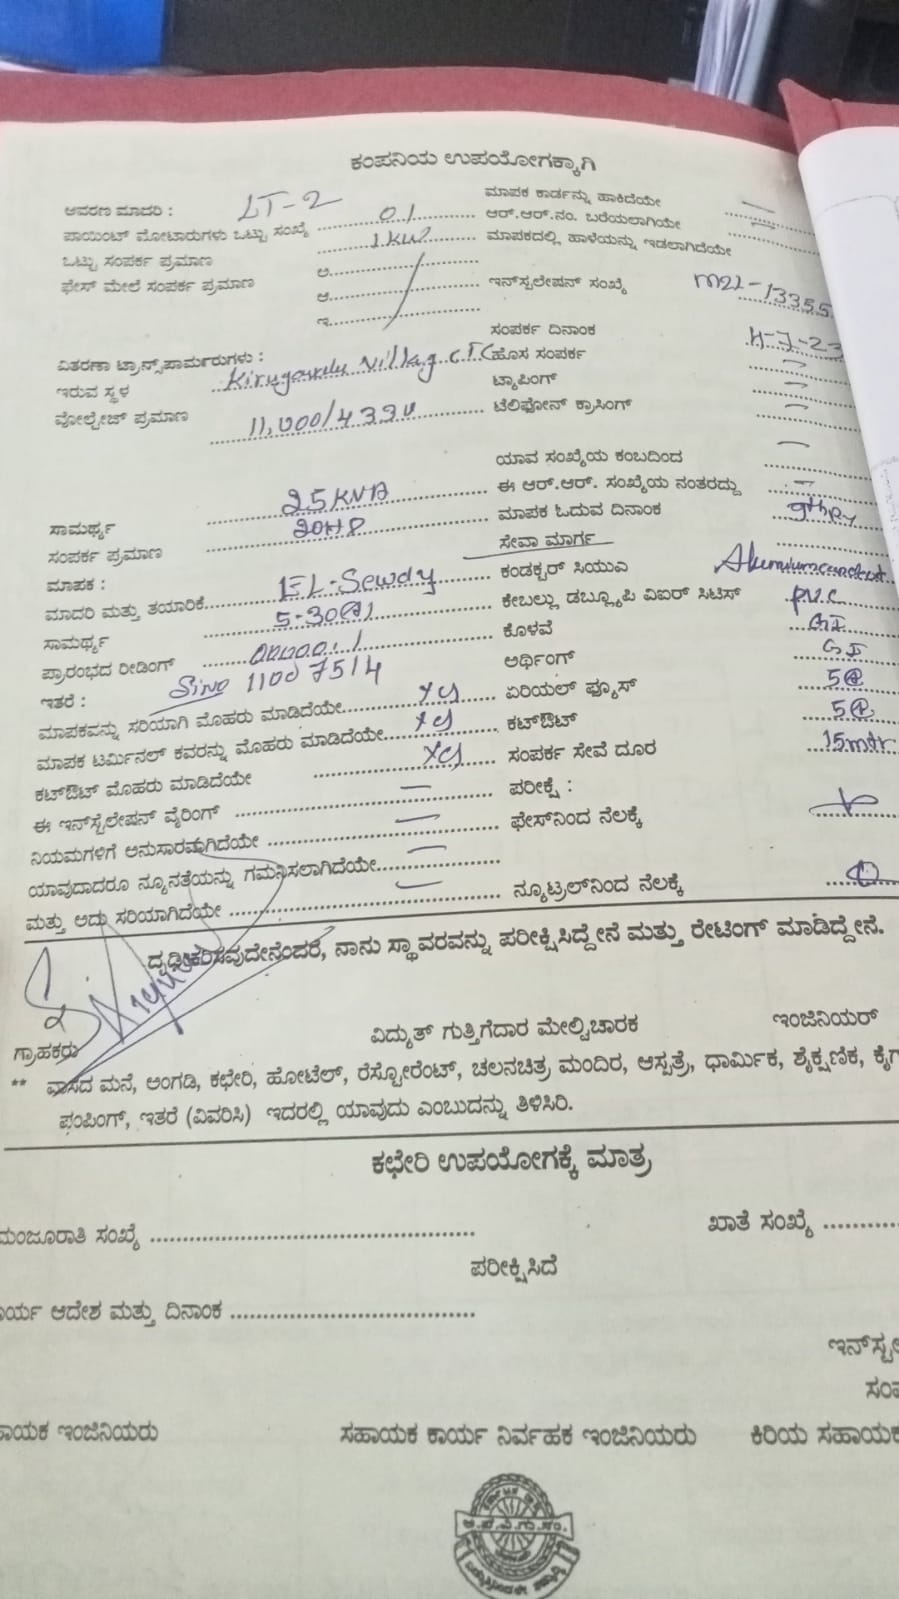 ಕಂಪನಿಯ ಉಪಯೋಗಕ್ಕಾಗಿ
ಆವರಣ ಮಾದರಿ : LT-2 ಮಾಪಕ ಕಾರ್ಡನ್ನು ಹಾಕಿದೆಯೇ
ಪಾಯಿಂಟ್ ಮೋಟಾರುಗಳು ಒಟ್ಟು ಸಂಖ್ಯೆ 01 ಆರ್.ಆರ್.ನಂ. ಬರೆಯಲಾಗಿಯೇ
ಒಟ್ಟು ಸಂಪರ್ಕ ಪ್ರಮಾಣ 1KW ಮಾಪಕದಲ್ಲಿ ಹಾಳೆಯನ್ನು ಇಡಲಾಗಿದೆಯೇ
ಫೇಸ್ ಮೇಲೆ ಸಂಪರ್ಕ ಪ್ರಮಾಣ ಅ.
ಆ. ಇನ್‌ಸ್ಟಲೇಷನ್ ಸಂಖ್ಯೆ M22-13355
ಇ.
ವಿತರಣಾ ಟ್ರಾನ್ಸ್‌ಫಾರ್ಮರುಗಳು : ಸಂಪರ್ಕ ದಿನಾಂಕ
ಇರುವ ಸ್ಥಳ Village ಹೊಸ ಸಂಪರ್ಕ
ವೋಲ್ಟೇಜ್ ಪ್ರಮಾಣ 11,000/433V ಟ್ಯಾಪಿಂಗ್
ಟೆಲಿಫೋನ್ ಕ್ರಾಸಿಂಗ್
ಯಾವ ಸಂಖ್ಯೆಯ ಕಂಬದಿಂದ
ಸಾಮರ್ಥ್ಯ 25KVA ಈ ಆರ್.ಆರ್. ಸಂಖ್ಯೆಯ ನಂತರದ್ದು
ಸಂಪರ್ಕ ಪ್ರಮಾಣ 20HP ಮಾಪಕ ಓದುವ ದಿನಾಂಕ
ಮಾಪಕ : ಸೇವಾ ಮಾರ್ಗ
ಮಾದರಿ ಮತ್ತು ತಯಾರಿಕೆ EL-Sewdy ಕಂಡಕ್ಟರ್ ಸಿಯುವಿ
ಸಾಮರ್ಥ್ಯ 5-30(A) ಕೇಬಲ್ಲು ಡಬ್ಲ್ಯೂಪಿ ವಿಐರ್ ಸಿಟಿಸ್ P.V.C
ಪ್ರಾರಂಭದ ರೀಡಿಂಗ್ ಕೊಳವೆ GI
ಇತರೆ : Slno 11007514 ಅರ್ಥಿಂಗ್ GI
ಮಾಪಕವನ್ನು ಸರಿಯಾಗಿ ಮೊಹರು ಮಾಡಿದೆಯೇ Yes ಏರಿಯಲ್ ಫ್ಯೂಸ್ 5A
ಮಾಪಕ ಟರ್ಮಿನಲ್ ಕವರನ್ನು ಮೊಹರು ಮಾಡಿದೆಯೇ Yes ಕಟ್‌ಔಟ್ 5A
ಕಟ್‌ಔಟ್ ಮೊಹರು ಮಾಡಿದೆಯೇ Yes ಸಂಪರ್ಕ ಸೇವೆ ದೂರ 15mtr
ಈ ಇನ್‌ಸ್ಟಲೇಷನ್ ವೈರಿಂಗ್ ಪರೀಕ್ಷೆ :
ನಿಯಮಗಳಿಗೆ ಅನುಸಾರವಾಗಿದೆಯೇ ಫೇಸ್‌ನಿಂದ ನೆಲಕ್ಕೆ
ಯಾವುದಾದರೂ ನ್ಯೂನತೆಯನ್ನು ಗಮನಿಸಲಾಗಿದೆಯೇ
ಮತ್ತು ಅದು ಸರಿಯಾಗಿದೆಯೇ ನ್ಯೂಟ್ರಲ್‌ನಿಂದ ನೆಲಕ್ಕೆ
ದೃಢೀಕರಿಸುವುದೇನೆಂದರೆ, ನಾನು ಸ್ಥಾವರವನ್ನು ಪರೀಕ್ಷಿಸಿದ್ದೇನೆ ಮತ್ತು ರೇಟಿಂಗ್ ಮಾಡಿದ್ದೇನೆ.
ಗ್ರಾಹಕರು ವಿದ್ಯುತ್ ಗುತ್ತಿಗೆದಾರ ಮೇಲ್ವಿಚಾರಕ ಇಂಜಿನಿಯರ್
** ವಾಸದ ಮನೆ, ಅಂಗಡಿ, ಕಛೇರಿ, ಹೋಟೆಲ್, ರೆಸ್ಟೋರೆಂಟ್, ಚಲನಚಿತ್ರ ಮಂದಿರ, ಆಸ್ಪತ್ರೆ, ಧಾರ್ಮಿಕ, ಶೈಕ್ಷಣಿಕ,
ಪಂಪಿಂಗ್, ಇತರೆ (ವಿವರಿಸಿ) ಇದರಲ್ಲಿ ಯಾವುದು ಎಂಬುದನ್ನು ತಿಳಿಸಿರಿ.
ಕಛೇರಿ ಉಪಯೋಗಕ್ಕೆ ಮಾತ್ರ
ಮಂಜೂರಾತಿ ಸಂಖ್ಯೆ ಖಾತೆ ಸಂಖ್ಯೆ
ಪರೀಕ್ಷಿಸಿದೆ
ಆದೇಶ ಮತ್ತು ದಿನಾಂಕ
ಇಂಜಿನಿಯರು ಸಹಾಯಕ ಕಾರ್ಯ ನಿರ್ವಹಕ ಇಂಜಿನಿಯರು ಕಿರಿಯ ಸಹಾಯಕ